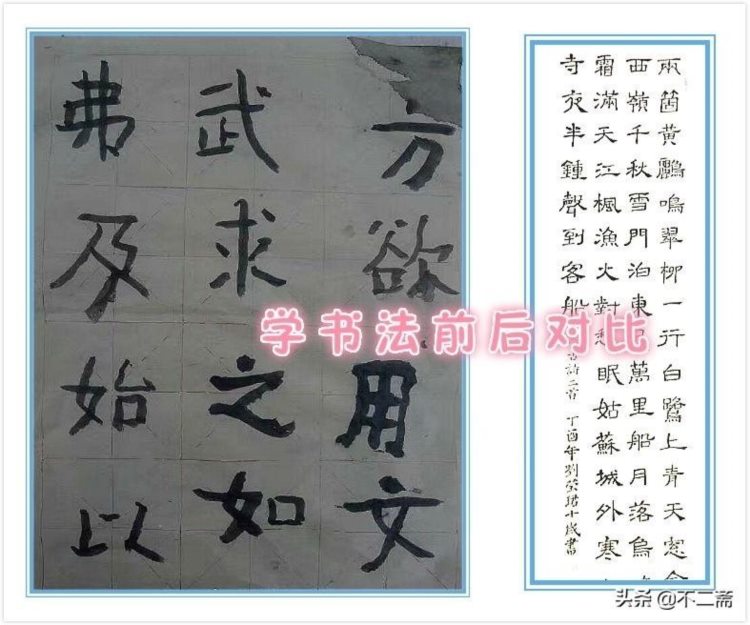 方欲用文
武求之如
弗及始以
学书法前后对比
兩箇黃鸝鳴翠柳一行白鷺上青天窓含
西嶺千秋雪門泊東萬里船月落烏
霜滿天江楓漁火對愁眠姑蘇城外寒
寺夜半鍾聲到客船
古詩二首 丁酉年劉十歲書
头条 @不二斋